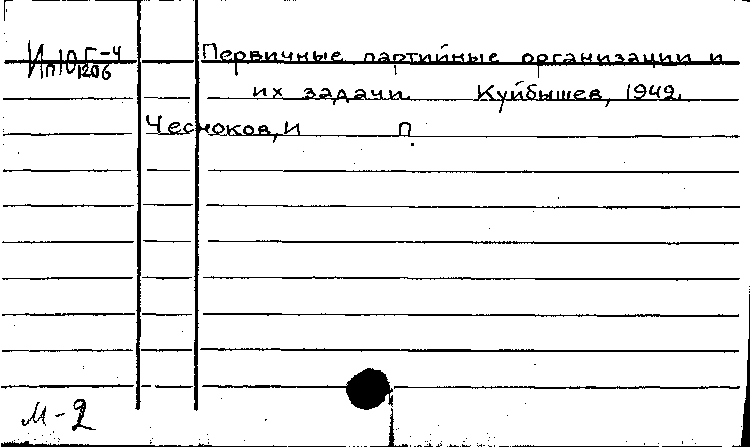 Ип10 Г-4 Первичные партийные организации и
1206
их задачи. Куйбышев, 1942.
Чесноков, И П.
М-2